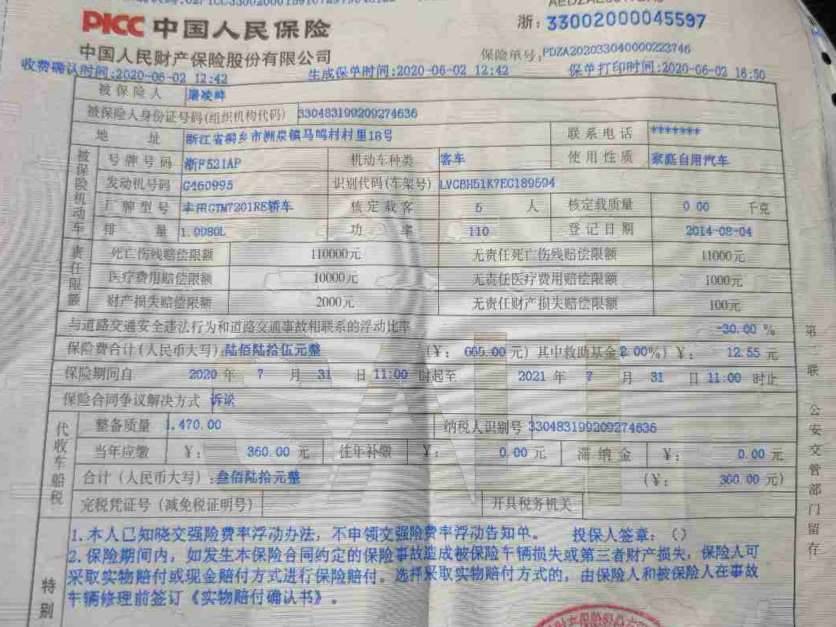 PICC 中国人民保险
浙: 33002000045597
中国人民财产保险股份有限公司
保险单号: PDZA202033040000223746
收费确认时间:2020-06-02 12:42 生成保单时间:2020-06-02 12:42 保单打印时间:2020-06-02 16:50
被保险人
被保险人身份证号码(组织机构代码) 330483199209274636
地 址 浙江省桐乡市洲泉镇马鸣村村里18号 联系电话 *******
被保险机动车
号牌号码 浙F521AP 机动车种类 客车 使用性质 家庭自用汽车
发动机号码 G460995 识别代码(车架号) LVGBH51K7EG189504
厂牌型号 丰田GTM7201RE轿车 核定载客 5 人 核定载质量 0.00 千克
排 量 1.9980L 功 率 110 登记日期 2014-08-04
责任限额
死亡伤残赔偿限额 110000元 无责任死亡伤残赔偿限额 11000元
医疗费用赔偿限额 10000元 无责任医疗费用赔偿限额 1000元
财产损失赔偿限额 2000元 无责任财产损失赔偿限额 100元
与道路交通安全违法行为和道路交通事故相联系的浮动比率 -30.00 %
保险费合计(人民币大写):陆佰陆拾伍元整 (¥: 665.00 元) 其中救助基金(2.00%) ¥: 12.55 元
保险期间自 2020 年 7 月 31 日 11:00 时起至 2021 年 7 月 31 日 11:00 时止
保险合同争议解决方式 诉讼
代收车船税
整备质量 1,470.00 纳税人识别号 330483199209274636
当年应缴 ¥: 360.00 元 往年补缴 ¥: 0.00 元 滞纳金 ¥: 0.00 元
合计(人民币大写):叁佰陆拾元整 (¥: 360.00 元)
完税凭证号(减免税证明号) 开具税务机关
特别
1.本人已知晓交强险费率浮动办法，不申领交强险费率浮动告知单。 投保人签章：（）
2.保险期间内，如发生本保险合同约定的保险事故造成被保险车辆损失或第三者财产损失，保险人可
采取实物赔付或现金赔付方式进行保险赔付。选择采取实物赔付方式的，由保险人和被保险人在事故
车辆修理前签订《实物赔付确认书》。
第二联 公安交管部门留存